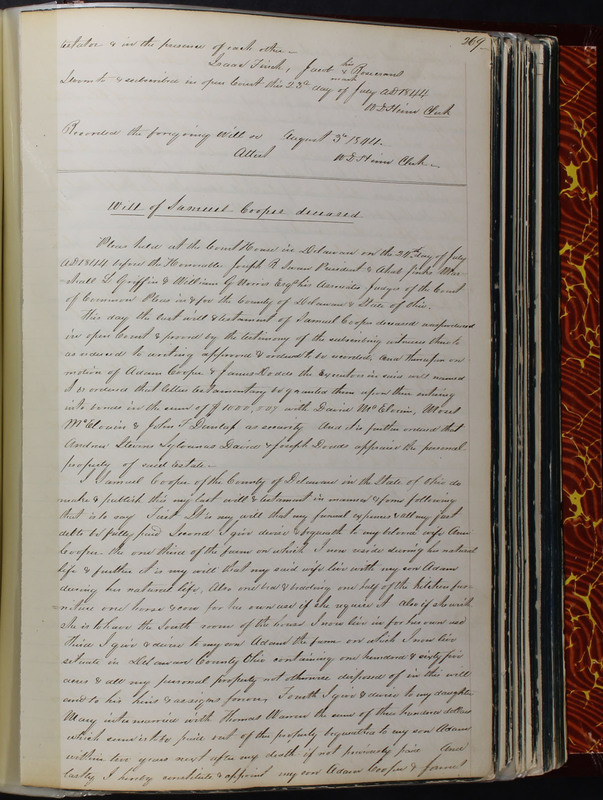 269
testator & in the presence of each other—
Isaac Finch, Jacob his x mark
Sworn to & subscribed in open Court this 23d day of July AD 1844
Clerk
Recorded the foregoing Will on August 3d 1844.
Attest Clerk—
Will of Samuel Cooper deceased
Pleas held at the Court House in Delaware on the day of July
AD 1844 before the Honorable Joseph R Swan President & Ahab Jinks
L Griffin & William G Norris Esqrs his Associate Judges of the Court
of Common Pleas in & for the County of Delaware & State of Ohio.
This day the last will & testament of Samuel Cooper deceased was produced
in open Court & proved by the testimony of the subscribing witnesses thereto
as reduced to writing approved & ordered to be recorded, and thereupon on
motion of Adam Cooper & James Dodds the Executors in said will named
it is ordered that letters testamentary be granted them upon their entering
into bonds in the sum of $1000,00 with David McElvain,
McElvain & John F Dunlap as security And it is further ordered that
Andrew Stevens Sylvanus & Joseph Dodds appraise the personal
property of said estate—
I Samuel Cooper of the County of Delaware in the State of Ohio do
make & publish this my last will & testament in manner & form following
that is to say First It is my will that my funeral expenses & all my just
debts be fully paid Second I give devise & bequeath to my beloved wife Ann
Cooper the one third of the farm on which I now reside during her natural
life & further it is my will that my said wife live with my son Adam
during her natural life, Also one bed & bedding one half of the kitchen fur-
niture one horse & cow for her own use if she require it Also if she wish
she is to have the South room of the house I now live in for her own use
Third I give & devise to my son Adam the farm on which I now live
situate in Delaware County Ohio containing one hundred & sixty five
acres & all my personal property not otherwise disposed of in this will
and to his heirs & assigns forever, Fourth I give & devise to my daughter
Mary intermarried with Thomas Warren the sum of three hundred dollars
which sum is to be paid out of the property bequeathed to my son Adam
within two years next after my death if not previously paid And
lastly I hereby constitute & appoint my son Adam Cooper &